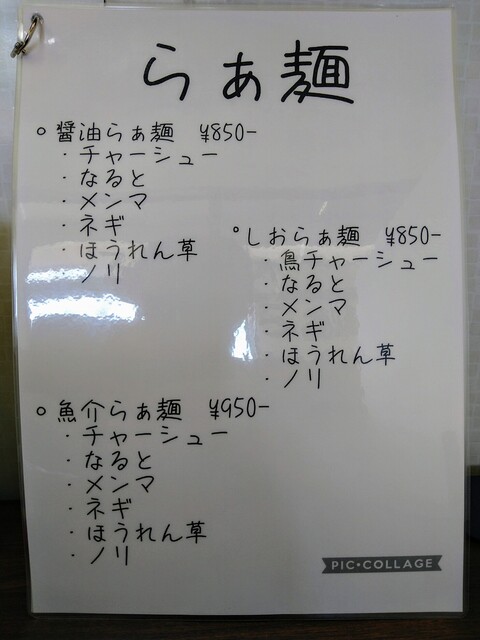 らぁ麺
○ 醤油らぁ麺 ¥850-
・チャーシュー
・なると
・メンマ
・ネギ
・ほうれん草
・ノリ
○ しおらぁ麺 ¥850-
・鳥チャーシュー
・なると
・メンマ
・ネギ
・ほうれん草
・ノリ
○ 魚介らぁ麺 ¥950-
・チャーシュー
・なると
・メンマ
・ネギ
・ほうれん草
・ノリ
PIC•COLLAGE